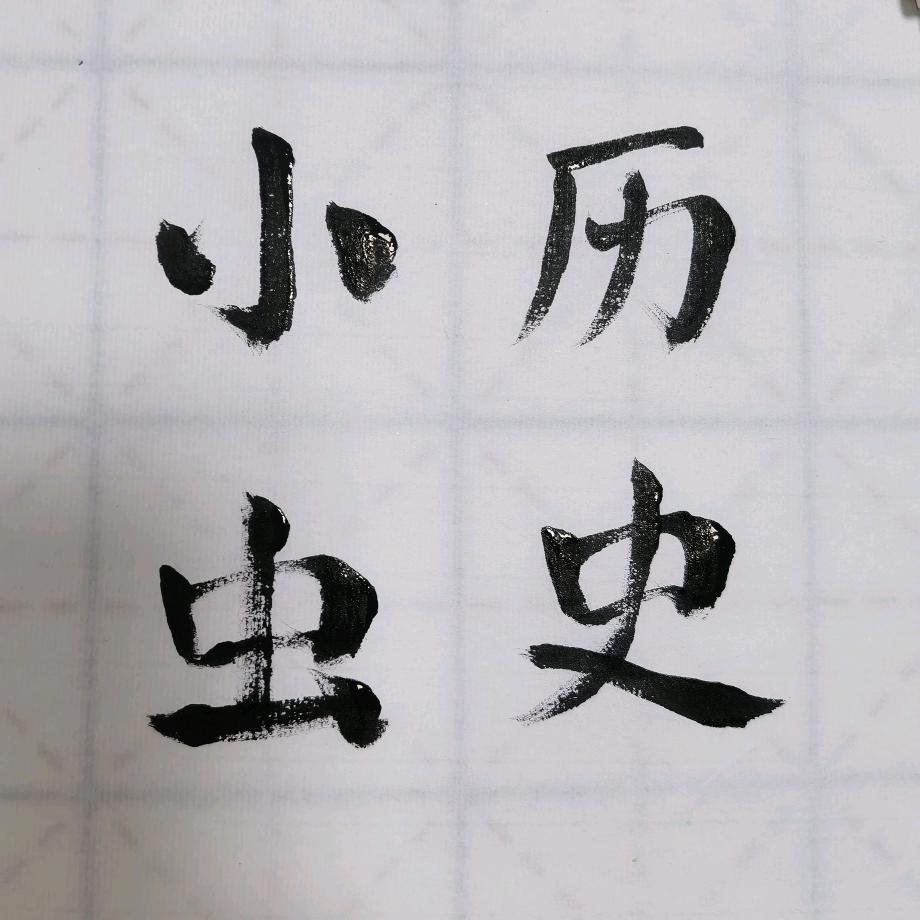 历史
小虫